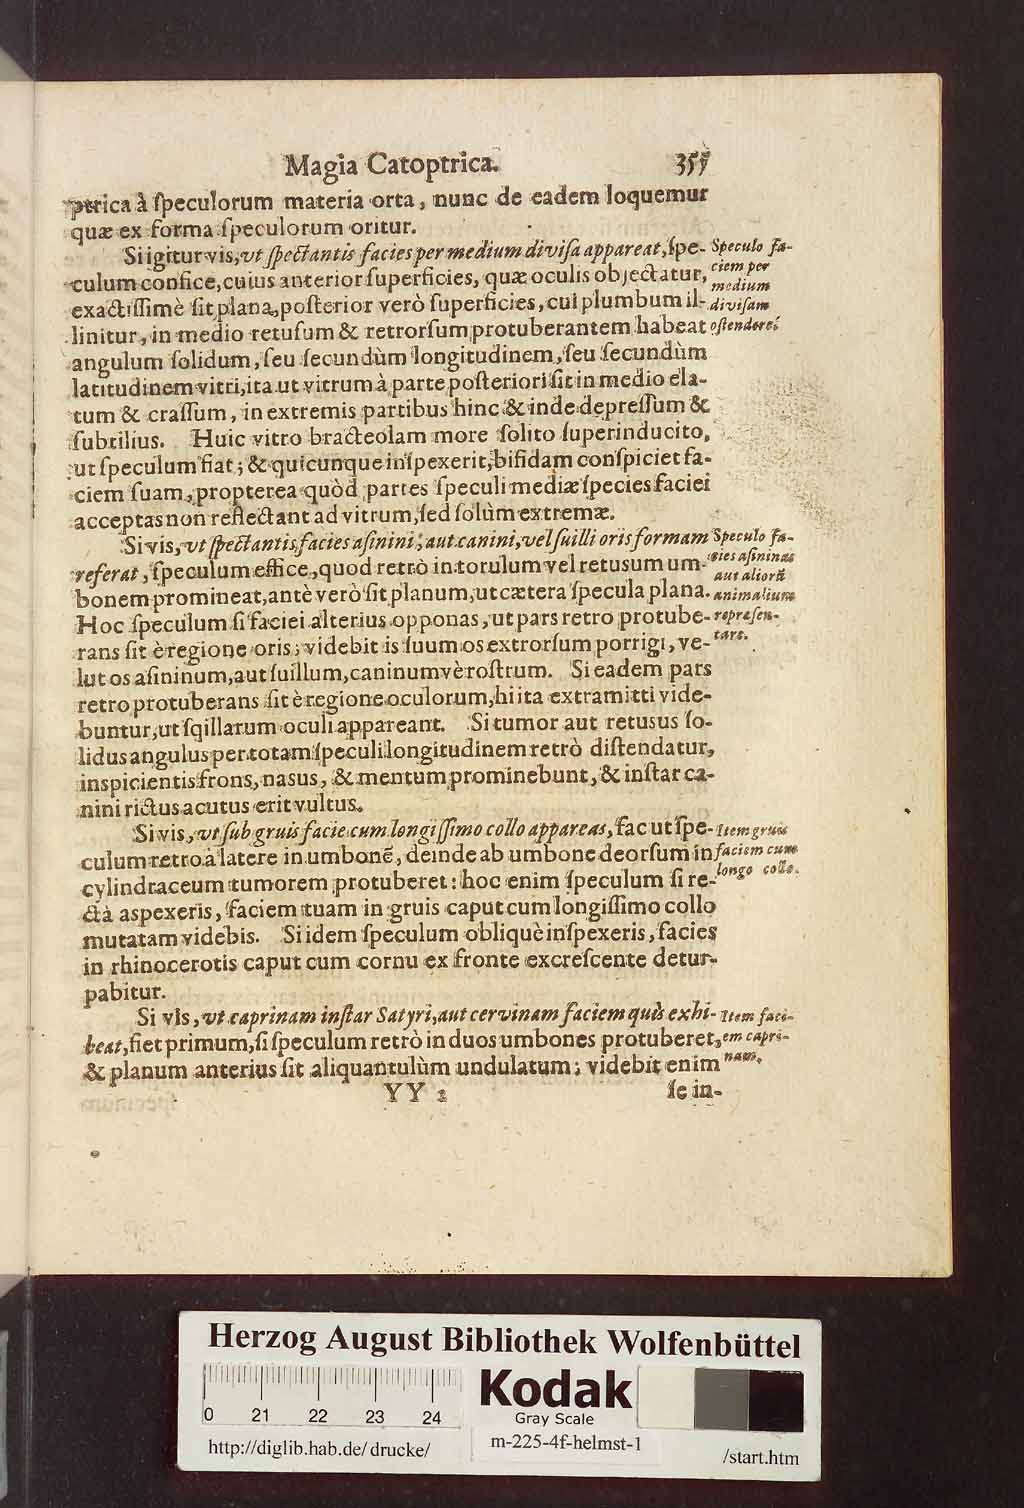 Magia Catoptrica. 355
ptrica à ſpeculorum materia orta, nunc de eadem loquemur
quæ ex forma ſpeculorum oritur.
Si igitur vis, vt ſpectantis facies per medium diviſa appareat, ſpe-
culum confice, cuius anterior ſuperficies, quæ oculis objectatur,
exactiſſimè ſit plana, poſterior verò ſuperficies, cui plumbum il-
linitur, in medio retuſum & retrorſum protuberantem habeat
angulum ſolidum, ſeu ſecundùm longitudinem, ſeu ſecundùm
latitudinem vitri, ita ut vitrum à parte poſteriori ſit in medio ela-
tum & craſſum, in extremis partibus hinc & inde depreſſum &
ſubtilius. Huic vitro bracteolam more ſolito ſuperinducito,
ut ſpeculum fiat; & quicunque inſpexerit, bifidam conſpiciet fa-
ciem ſuam, propterea quòd partes ſpeculi mediæ ſpecies faciei
acceptas non reflectant ad vitrum, ſed ſolùm extremæ.
Si vis, vt ſpectantis facies aſinini, aut canini, vel ſuilli oris formam
referat, ſpeculum effice, quod retrò in torulum vel retusum um-
bonem promineat, antè verò ſit planum, ut cætera ſpecula plana.
Hoc ſpeculum ſi faciei alterius opponas, ut pars retro protube-
rans ſit è regione oris; videbit is ſuum os extrorſum porrigi, ve-
lut os aſininum, aut ſuillum, caninum vè roſtrum. Si eadem pars
retro protuberans ſit è regione oculorum, hi ita extramitti vide-
buntur, ut ſqillarum oculi appareant. Si tumor aut retusus ſo-
lidus angulus per totam ſpeculi longitudinem retrò diſtendatur,
inspicientis frons, nasus, & mentum prominebunt, & inſtar ca-
nini rictus acutus erit vultus.
Si vis, vt ſub gruis facie cum longiſſimo collo appareas, fac ut ſpe-
culum retro à latere in umbonē, deinde ab umbone deorſum in
cylindraceum tumorem protuberet: hoc enim ſpeculum ſi re-
ctà aspexeris, faciem tuam in gruis caput cum longiſſimo collo
mutatam videbis. Si idem ſpeculum obliquè inſpexeris, facies
in rhinocerotis caput cum cornu ex fronte excreſcente detur-
pabitur.
Si vis, vt caprinam inſtar Satyri, aut cervinam faciem quis exhi-
beat, fiet primum, ſi ſpeculum retrò in duos umbones protuberet,
& planum anterius ſit aliquantulùm undulatum; videbit enim
YY 2 ſe in-
Speculo fa-
ciem per
medium
diviſam
oſtendere.
Speculo fa-
cies aſininas
aut aliorū
animalium
repræſen-
tare.
Item gruis
faciem cum
longo collo.
Item faci-
em capri-
nam.
Herzog August Bibliothek Wolfenbüttel
0 21 22 23 24
Kodak
Gray Scale
http://diglib.hab.de/drucke/
m-225-4f-helmst-1
/start.htm